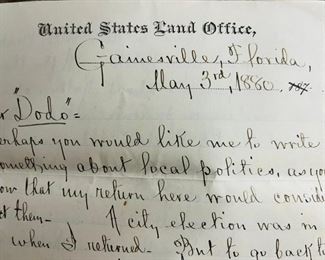 United States Land Office,
Gainesville, Florida,
May 3rd, 1880
"Dodo"=
perhaps you would like me to write
something about local politics, as you
that my return here would
them- A city election was in
when I returned. But to go back